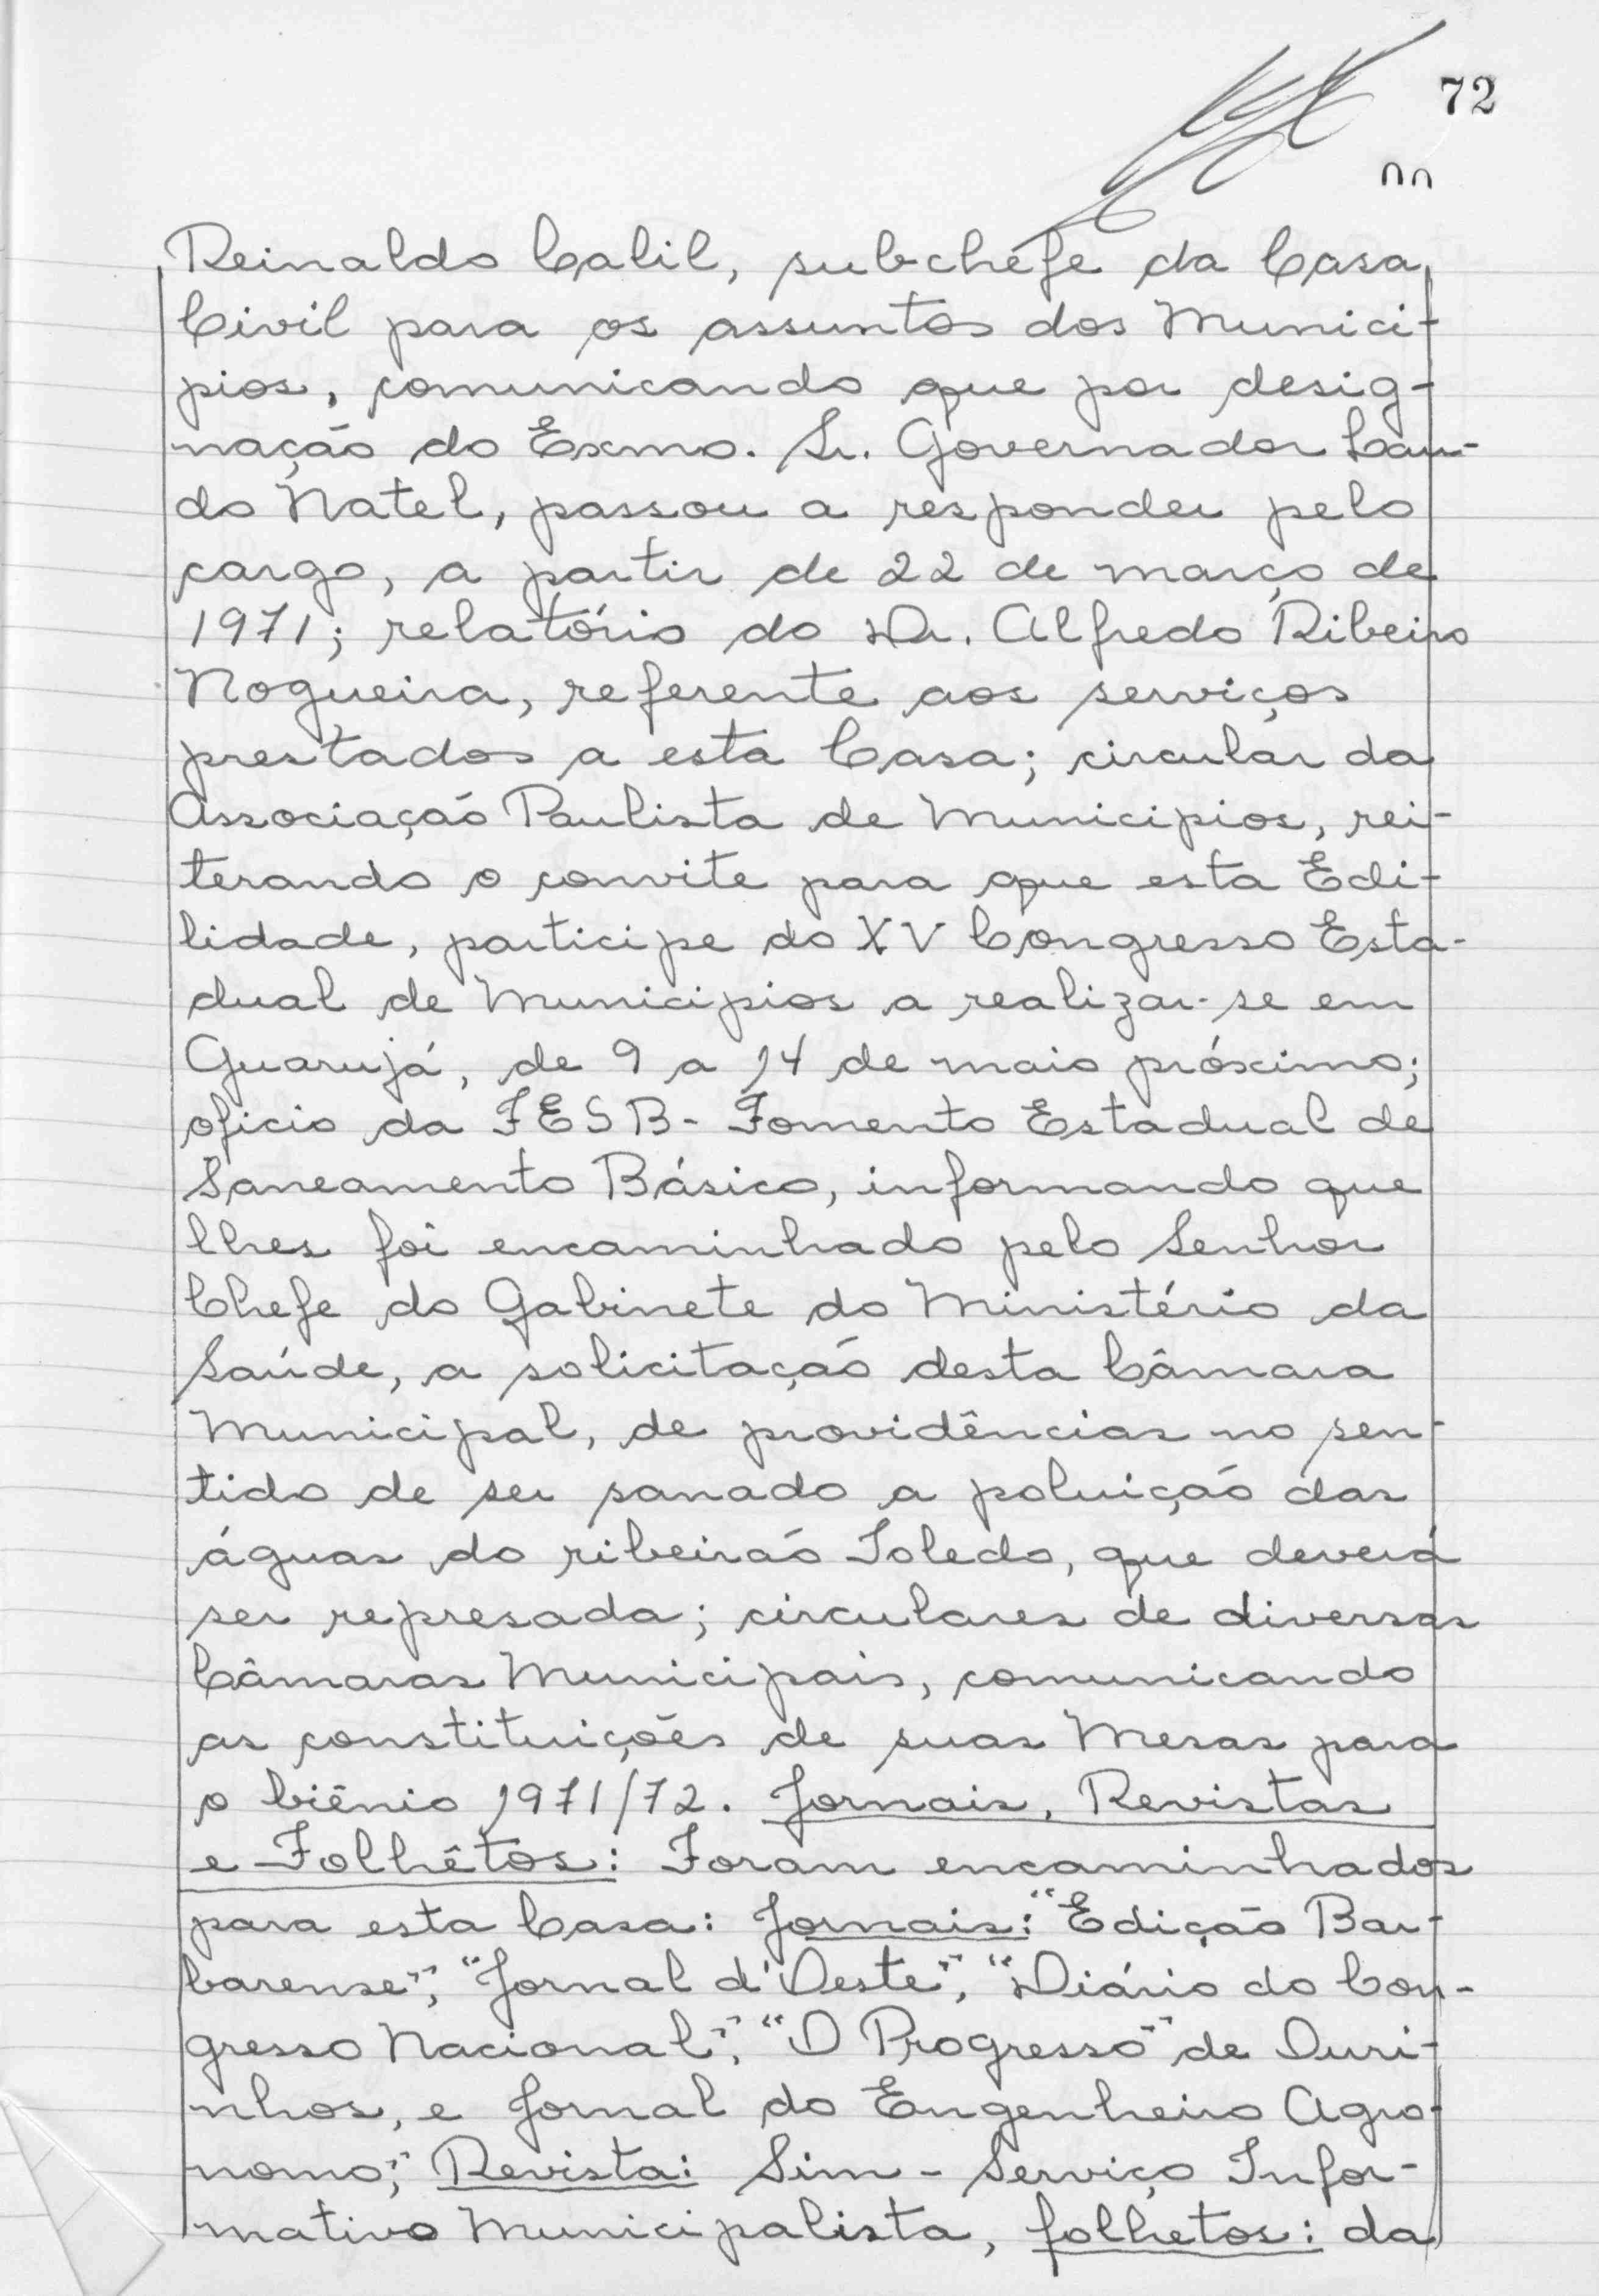 72
Reinaldo Calil, subchefe da Casa
Civil para os assuntos dos Munici-
pios, comunicando que por desig-
nação do Exmo. Sr. Governador Lau-
do Natel, passou a responder pelo
cargo, a partir de 22 de março de
1971; relatório do Dr. Alfredo Ribeiro
Nogueira, referente aos serviços
prestados a esta Casa; circular da
Associação Paulista de Municipios, rei-
terando o convite para que esta Edi-
lidade, participe do XV Congresso Esta-
dual de Municipios a realizar-se em
Guarujá, de 9 a 14 de maio próximo;
oficio da FESB - Fomento Estadual de
Saneamento Básico, informando que
lhes foi encaminhado pelo Senhor
Chefe do Gabinete do Ministério da
Saúde, a solicitação desta Câmara
Municipal, de providências no sen-
tido de ser sanado a poluição das
águas do ribeirão Toledo, que deverá
ser represada; circulares de diversas
Câmaras Municipais, comunicando
as constituições de suas Mesas para
o biênio 1971/72. Jornais, Revistas
e Folhêtos: Foram encaminhados
para esta Casa: Jornais: "Edição Bar-
barense", "Jornal d'Oeste", "Diário do Con-
gresso Nacional", "O Progresso" de Ouri-
nhos, e Jornal do Engenheiro Agro-
nomo;" Revista: Sim - Serviço Infor-
mativo Municipalista, folhetos: da